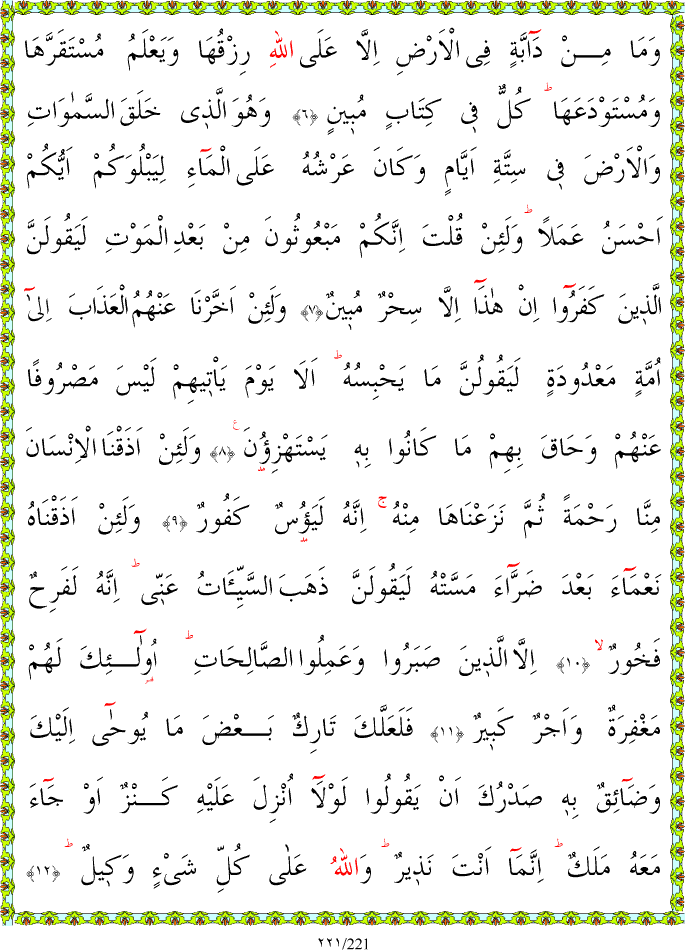 وَمَا مِنْ دَٓابَّةٍ فِى الْاَرْضِ اِلَّا عَلَى اللّٰهِ رِزْقُهَا وَيَعْلَمُ مُسْتَقَرَّهَا
وَمُسْتَوْدَعَهَاۜ كُلٌّ ف۪ى كِتَابٍ مُب۪ينٍ ﴿٦﴾ وَهُوَ الَّذ۪ى خَلَقَ السَّمٰوَاتِ
وَالْاَرْضَ ف۪ى سِتَّةِ اَيَّامٍ وَكَانَ عَرْشُهُ عَلَى الْمَٓاءِ لِيَبْلُوَكُمْ اَيُّكُمْ
اَحْسَنُ عَمَلاًؕ وَلَئِنْ قُلْتَ اِنَّكُمْ مَبْعُوثُونَ مِنْ بَعْدِ الْمَوْتِ لَيَقُولَنَّ
الَّذ۪ينَ كَفَرُٓوا اِنْ هٰذَٓا اِلَّا سِحْرٌ مُب۪ينٌ ﴿٧﴾ وَلَئِنْ اَخَّرْنَا عَنْهُمُ الْعَذَابَ اِلٰٓى
اُمَّةٍ مَعْدُودَةٍ لَيَقُولُنَّ مَا يَحْبِسُهُؕ اَلَا يَوْمَ يَاْت۪يهِمْ لَيْسَ مَصْرُوفًا
عَنْهُمْ وَحَاقَ بِهِمْ مَا كَانُوا بِه۪ يَسْتَهْزِؤُنَ ﴿٨﴾ وَلَئِنْ اَذَقْنَا الْاِنْسَانَ
مِنَّا رَحْمَةً ثُمَّ نَزَعْنَاهَا مِنْهُۚ اِنَّهُ لَيَؤُسٌ كَفُورٌ ﴿٩﴾ وَلَئِنْ اَذَقْنَاهُ
نَعْمَٓاءَ بَعْدَ ضَرَّٓاءَ مَسَّتْهُ لَيَقُولَنَّ ذَهَبَ السَّيِّـَٔاتُ عَنّ۪ىؕ اِنَّهُ لَفَرِحٌ
فَخُورٌۙ ﴿١٠﴾ اِلَّا الَّذ۪ينَ صَبَرُوا وَعَمِلُوا الصَّالِحَاتِؕ اُولٰٓئِكَ لَهُمْ
مَغْفِرَةٌ وَاَجْرٌ كَب۪يرٌ ﴿١١﴾ فَلَعَلَّكَ تَارِكٌ بَعْضَ مَا يُوحٰٓى اِلَيْكَ
وَضَٓائِقٌ بِه۪ صَدْرُكَ اَنْ يَقُولُوا لَوْلَٓا اُنْزِلَ عَلَيْهِ كَنْزٌ اَوْ جَٓاءَ
مَعَهُ مَلَكٌؕ اِنَّمَٓا اَنْتَ نَذ۪يرٌؕ وَاللّٰهُ عَلٰى كُلِّ شَىْءٍ وَك۪يلٌؕ ﴿١٢﴾
٢٢١/221